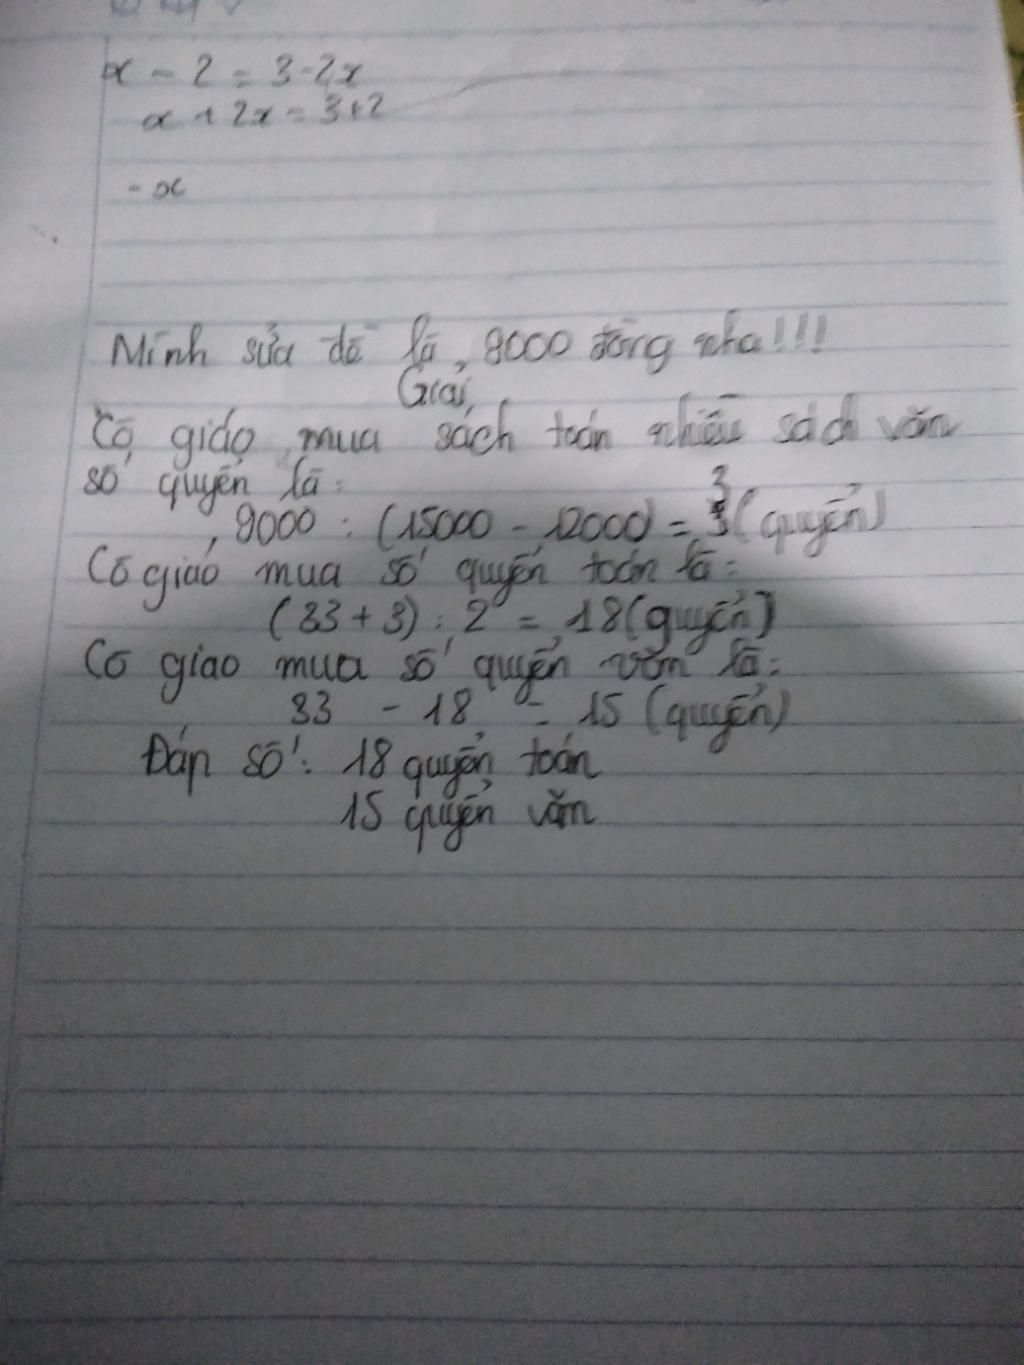 x - 2 = 3 - 2x
x + 2x = 3 + 2
- x
Mình sửa đề là, 9000 đồng nha!!!
Giải
Cô giáo mua sách toán nhiều sách văn
số quyển là:
9000 : (15000 - 12000) = 3 (quyển)
Cô giáo mua số quyển toán là:
(33 + 3) : 2 = 18 (quyển)
Cô giao mua số quyển văn là:
33 - 18 = 15 (quyển)
Đáp số: 18 quyển toán
15 quyển văn